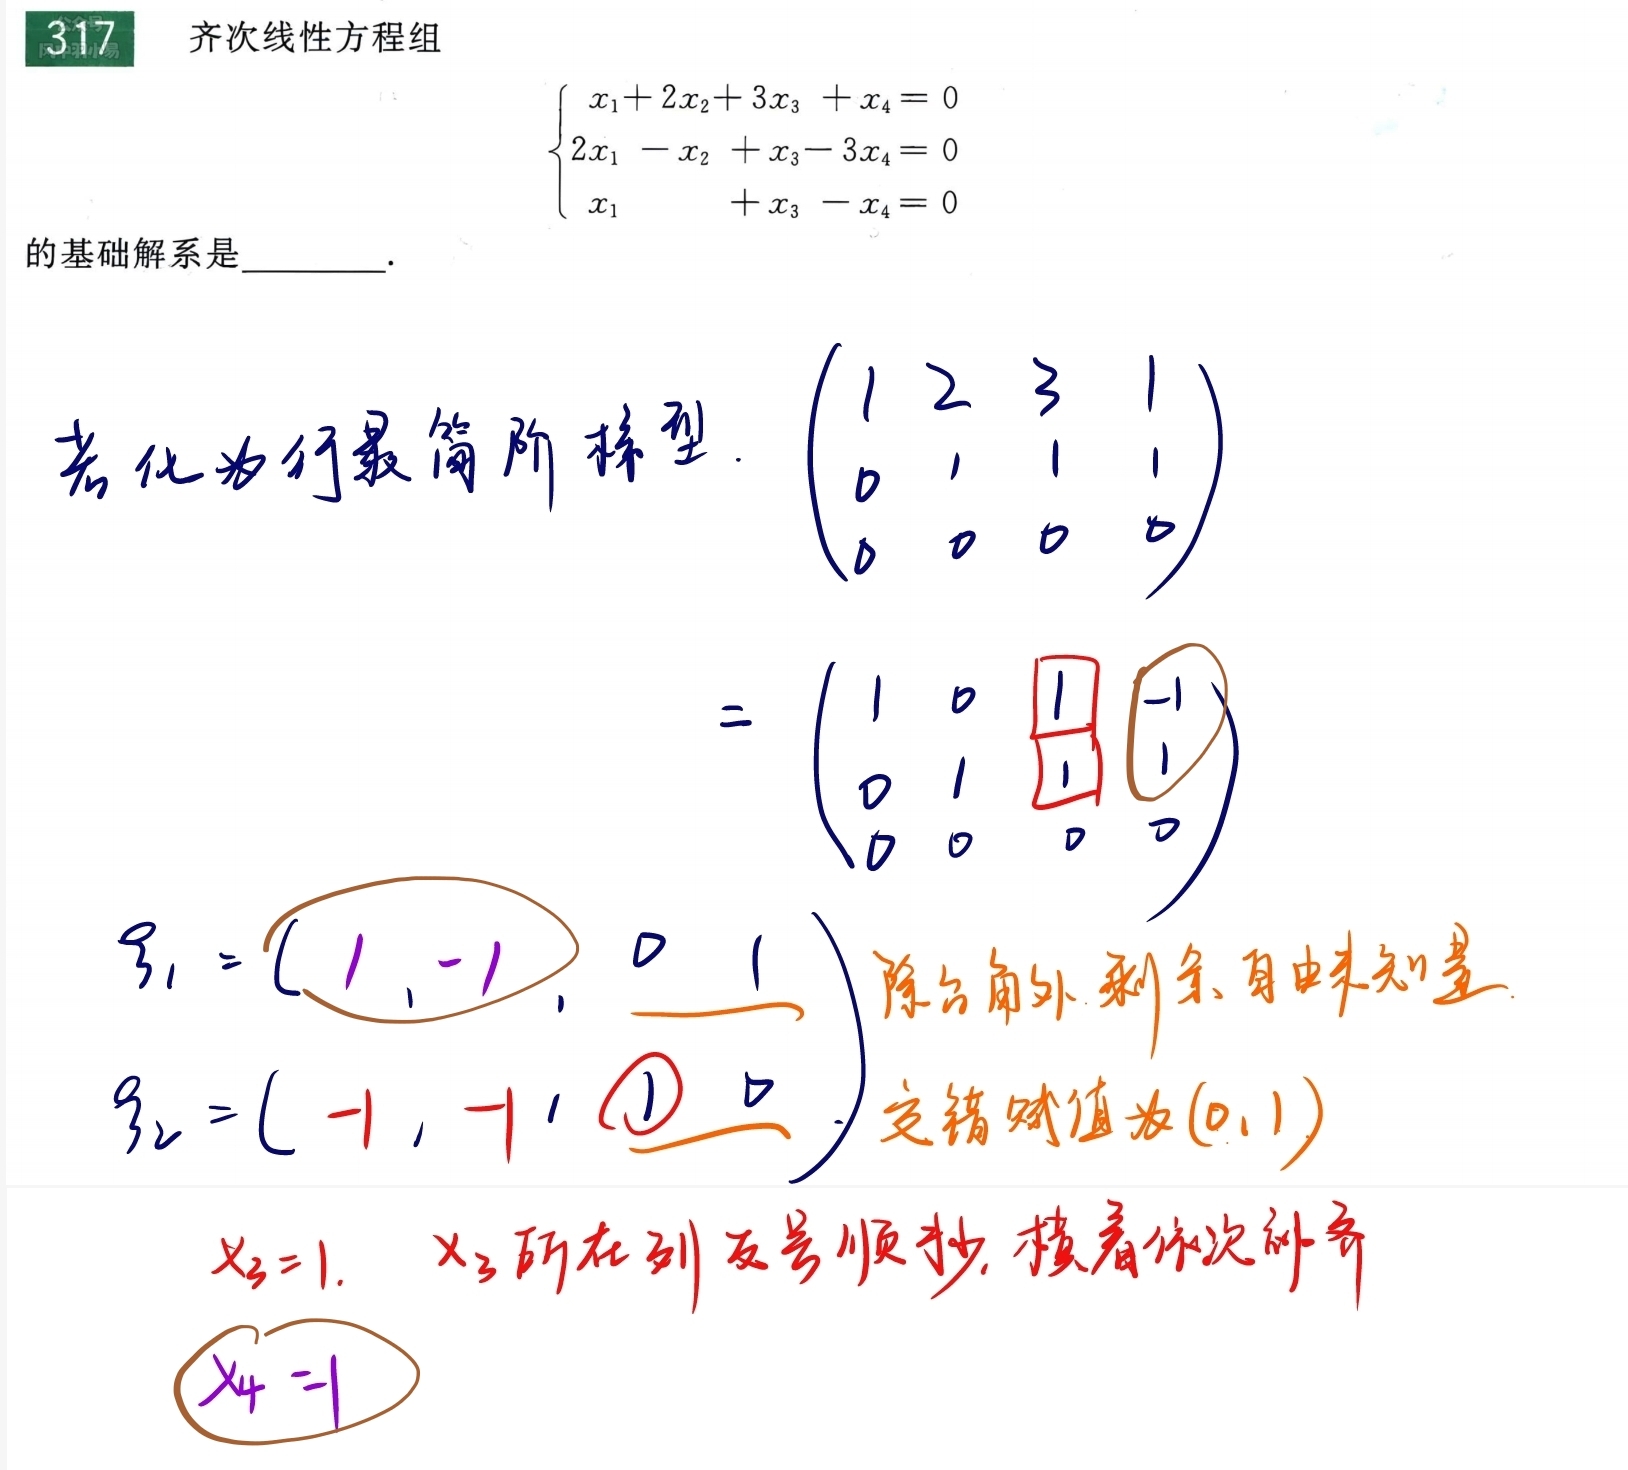 317 齐次线性方程组
x₁+2x₂+3x₃+x₄=0
2x₁-x₂+x₃-3x₄=0
x₁+x₃-x₄=0
的基础解系是________.
若化为行最简阶梯型.
1 2 3 1
0 1 1 1
0 0 0 0
=
1 0 1 -1
0 1 1 1
0 0 0 0
ξ₁=(1,-1, 0 1) 除台角外.剩余自由未知量.
ξ₂=(-1,-1, 1 0) 交错赋值为(0,1)
x₃=1. x₃所在列反号顺抄,横着依次补齐
x₄=1